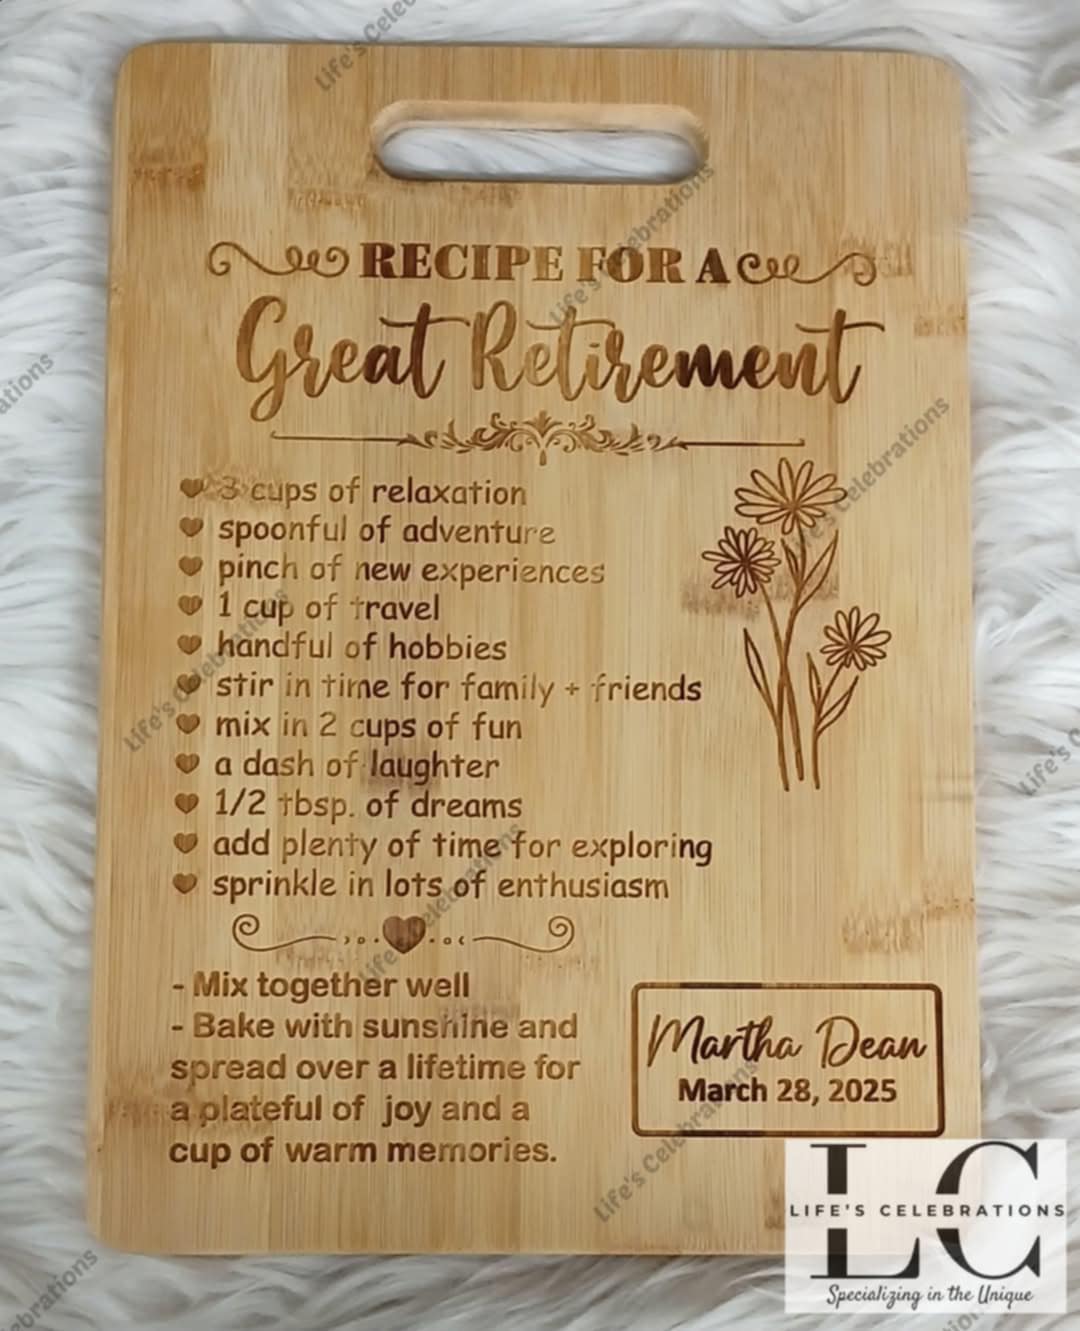 RECIPE FOR A
Great Retirement
3 cups of relaxation
spoonful of adventure
pinch of new experiences
1 cup of travel
handful of hobbies
stir in time for family + friends
mix in 2 cups of fun
a dash of laughter
1/2 tbsp. of dreams
add plenty of time for exploring
sprinkle in lots of enthusiasm
- Mix together well
- Bake with sunshine and
spread over a lifetime for
a plateful of joy and a
cup of warm memories.
Martha Dean
March 28, 2025
LC
LIFE'S CELEBRATIONS
Specializing in the Unique
Life's Celebrations
Life's Celebrations
Life's Celebrations
Life's Celebrations
Life's Celebrations
Life's Celebrations